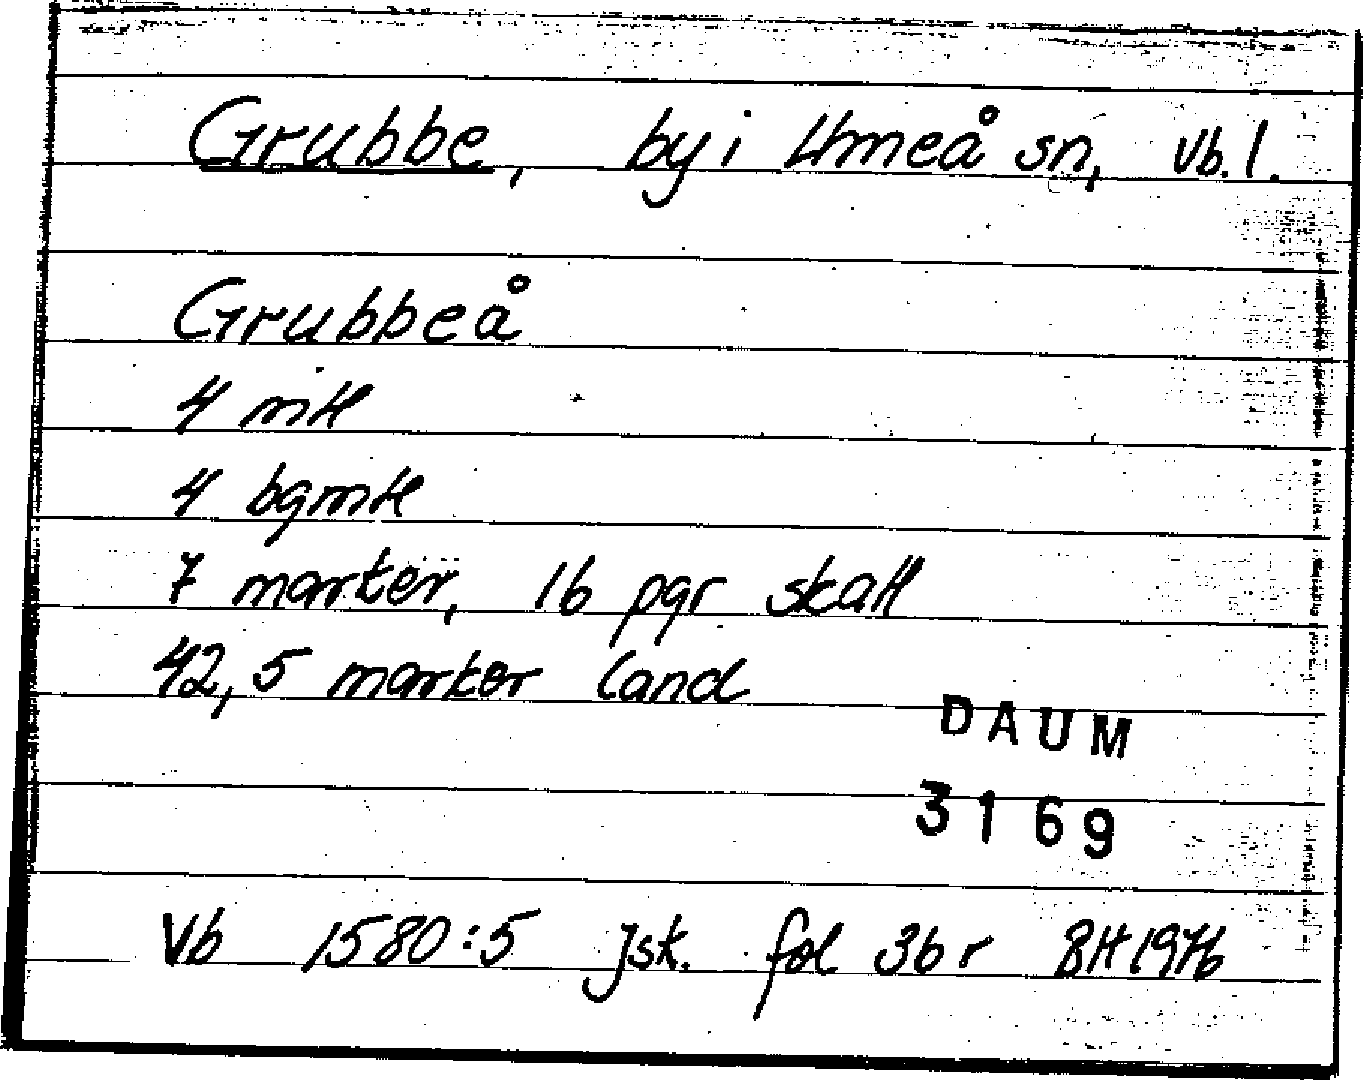 Grubbe, by i Umeå sn, Vb. l.
Grubbeå
4 mtl
4 bgmtl
7 marker, 16 pgr skatt
42,5 marker land
DAUM
3169
Vb 1580:5 Jsk. fol 36 r BH 1976